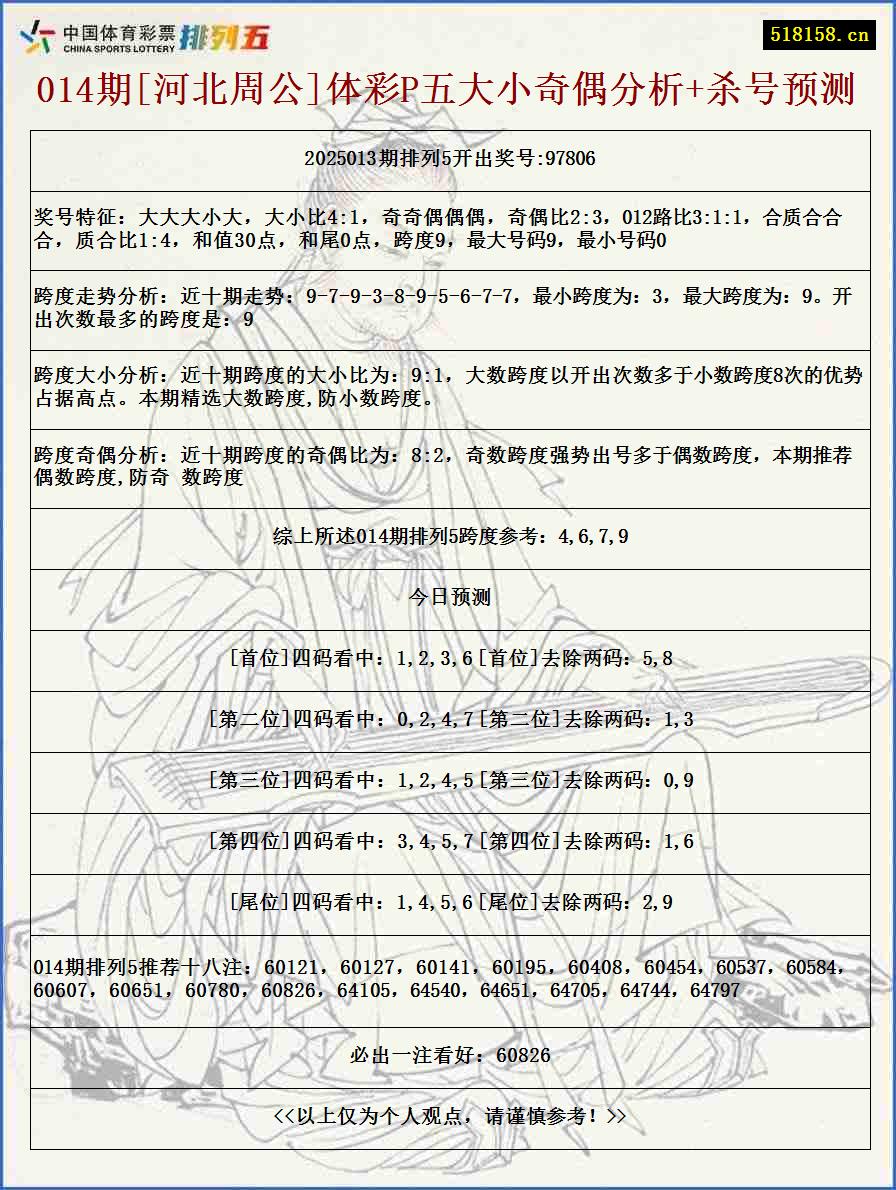 中国体育彩票 排列五
CHINA SPORTS LOTTERY
518158.cn
014期[河北周公]体彩P五大小奇偶分析+杀号预测
2025013期排列5开出奖号:97806
奖号特征：大大大小大，大小比4:1，奇奇偶偶偶，奇偶比2:3，012路比3:1:1，合质合合
合，质合比1:4，和值30点，和尾0点，跨度9，最大号码9，最小号码0
跨度走势分析：近十期走势：9-7-9-3-8-9-5-6-7-7，最小跨度为：3，最大跨度为：9。开
出次数最多的跨度是：9
跨度大小分析：近十期跨度的大小比为：9:1，大数跨度以开出次数多于小数跨度8次的优势
占据高点。本期精选大数跨度,防小数跨度。
跨度奇偶分析：近十期跨度的奇偶比为：8:2，奇数跨度强势出号多于偶数跨度，本期推荐
偶数跨度,防奇 数跨度
综上所述014期排列5跨度参考：4,6,7,9
今日预测
[首位]四码看中：1,2,3,6[首位]去除两码：5,8
[第二位]四码看中：0,2,4,7[第二位]去除两码：1,3
[第三位]四码看中：1,2,4,5[第三位]去除两码：0,9
[第四位]四码看中：3,4,5,7[第四位]去除两码：1,6
[尾位]四码看中：1,4,5,6[尾位]去除两码：2,9
014期排列5推荐十八注：60121，60127，60141，60195，60408，60454，60537，60584，
60607，60651，60780，60826，64105，64540，64651，64705，64744，64797
必出一注看好：60826
<<以上仅为个人观点，请谨慎参考！>>